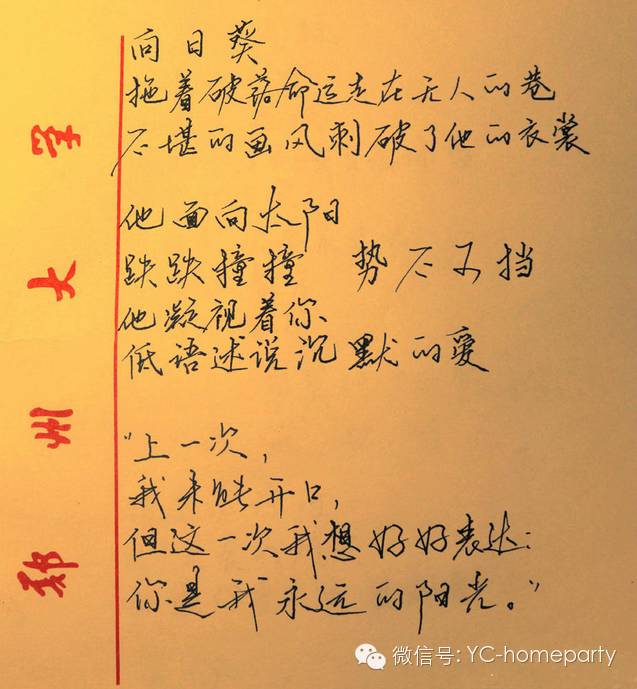 向日葵
拖着破落命运走在无人的巷
不堪的画风刺破了他的衣裳
他面向太阳
跌跌撞撞 势不可挡
他凝视着你
低语述说沉默的爱
“上一次，
我未能开口，
但这一次我想好好表达：
你是我永远的阳光。”
郑州大学
微信号: YC-homeparty